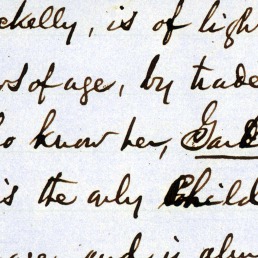 ckelly, is of ligh
rs of age, by trade
o know her, Gar
is the only Child